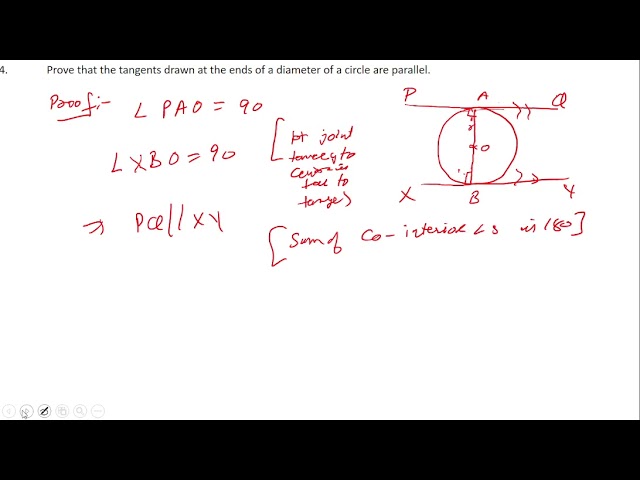 4. Prove that the tangents drawn at the ends of a diameter of a circle are parallel.
Proof:-
∠ PAO = 90
∠ XBO = 90
[ joint
to
to
⇒ PQ // XY
[ Sum of Co-interior ∠s is 180 ]
P A Q
O
X B Y